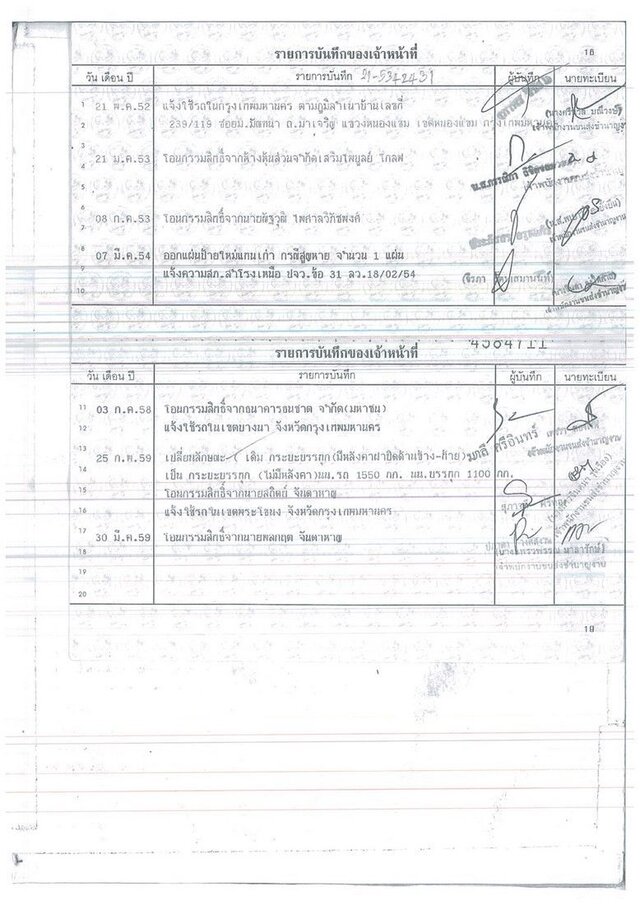 18
รายการบันทึกของเจ้าหน้าที่
วัน เดือน ปี รายการบันทึก 21-5342431 ผู้บันทึก นายทะเบียน
1 21 พ.ค.52 แจ้งใช้รถในกรุงเทพมหานคร ตามภูมิลำเนาบ้านเลขที่
2 239/119 ซอยม.มัณฑนา ถ.มาเจริญ แขวงหนองแขม เขตหนองแขม กรุงเทพมหานคร
3 21 ม.ค.53 โอนกรรมสิทธิ์จากห้างหุ้นส่วนจำกัดเสริมไพบูลย์ โกลฟ
4
5
6 08 ก.ค.53 โอนกรรมสิทธิ์จากนายณัฐวุฒิ ไพศาลวิภัชพงศ์
7
8 07 มี.ค.54 ออกแผ่นป้ายใหม่แทนเก่า กรณีสูญหาย จำนวน 1 แผ่น
9 แจ้งความสภ.สำโรงเหนือ ปจว.ข้อ 31 ลว.18/02/54
10
รายการบันทึกของเจ้าหน้าที่ 4584711
วัน เดือน ปี รายการบันทึก ผู้บันทึก นายทะเบียน
11 03 ก.ค.58 โอนกรรมสิทธิ์จากธนาคารธนชาต จำกัด(มหาชน)
12 แจ้งใช้รถในเขตบางนา จังหวัดกรุงเทพมหานคร
13 25 ก.พ.59 เปลี่ยนลักษณะ ( เดิม กระบะบรรทุก(มีหลังคาฝาปิดด้านข้าง-ท้าย)
14 เป็น กระบะบรรทุก (ไม่มีหลังคา)นน.รถ 1550 กก. นน.บรรทุก 1100 กก.
15 โอนกรรมสิทธิ์จากนายสถิตย์ จันดาหาญ
16 แจ้งใช้รถในเขตพระโขนง จังหวัดกรุงเทพมหานคร
17 30 มี.ค.59 โอนกรรมสิทธิ์จากนายพลกฤต จันดาหาญ
18
19
20
19